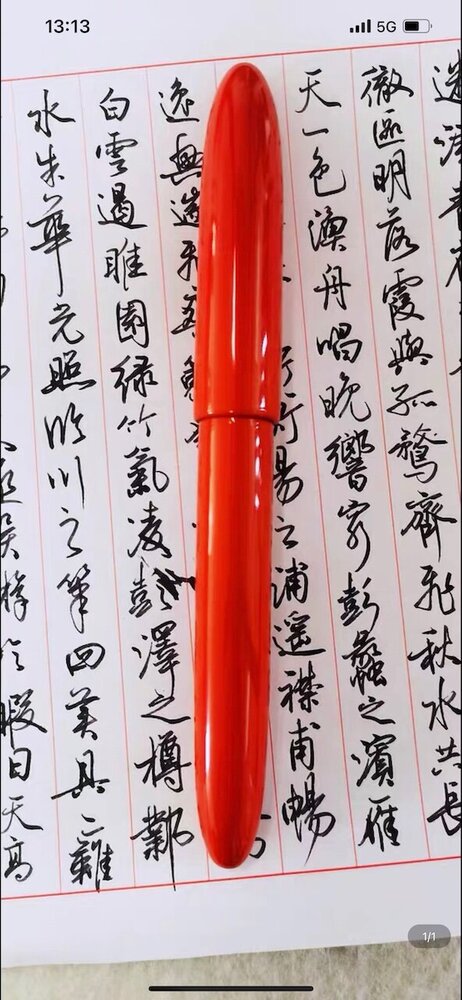 13:13
5G
迷津青雀
徹區明落霞與孤鶩齊飛秋水共長
天一色漁舟唱晚響窮彭蠡之濱雁
之浦遙襟甫暢
逸興遄飛爽
白雲遏睢園綠竹氣凌彭澤之樽鄴
水朱華光照臨川之筆四美具二難
暇日天高
1/1